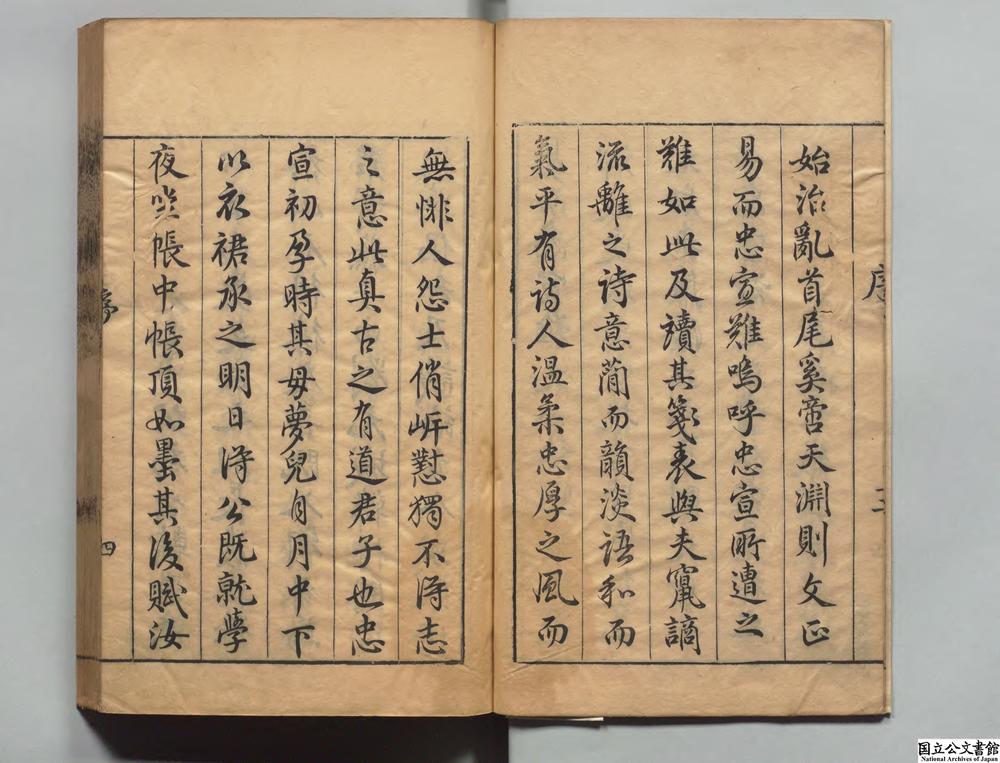 序
三
始治亂首尾奚啻天淵則文正
易而忠宣難嗚呼忠宣所遭之
難如此及讀其箋表與夫竄謫
流離之詩意簡而韻淡語和而
氣平有詩人溫柔忠厚之風而
無悱人怨士俏岍懟獨不得志
之意此真古之有道君子也忠
宣初孕時其母夢兒自月中下
以衣裙承之明日得公既就學
夜坐帳中帳頂如墨其後賦汝
序
四
国立公文書館
National Archives of Japan